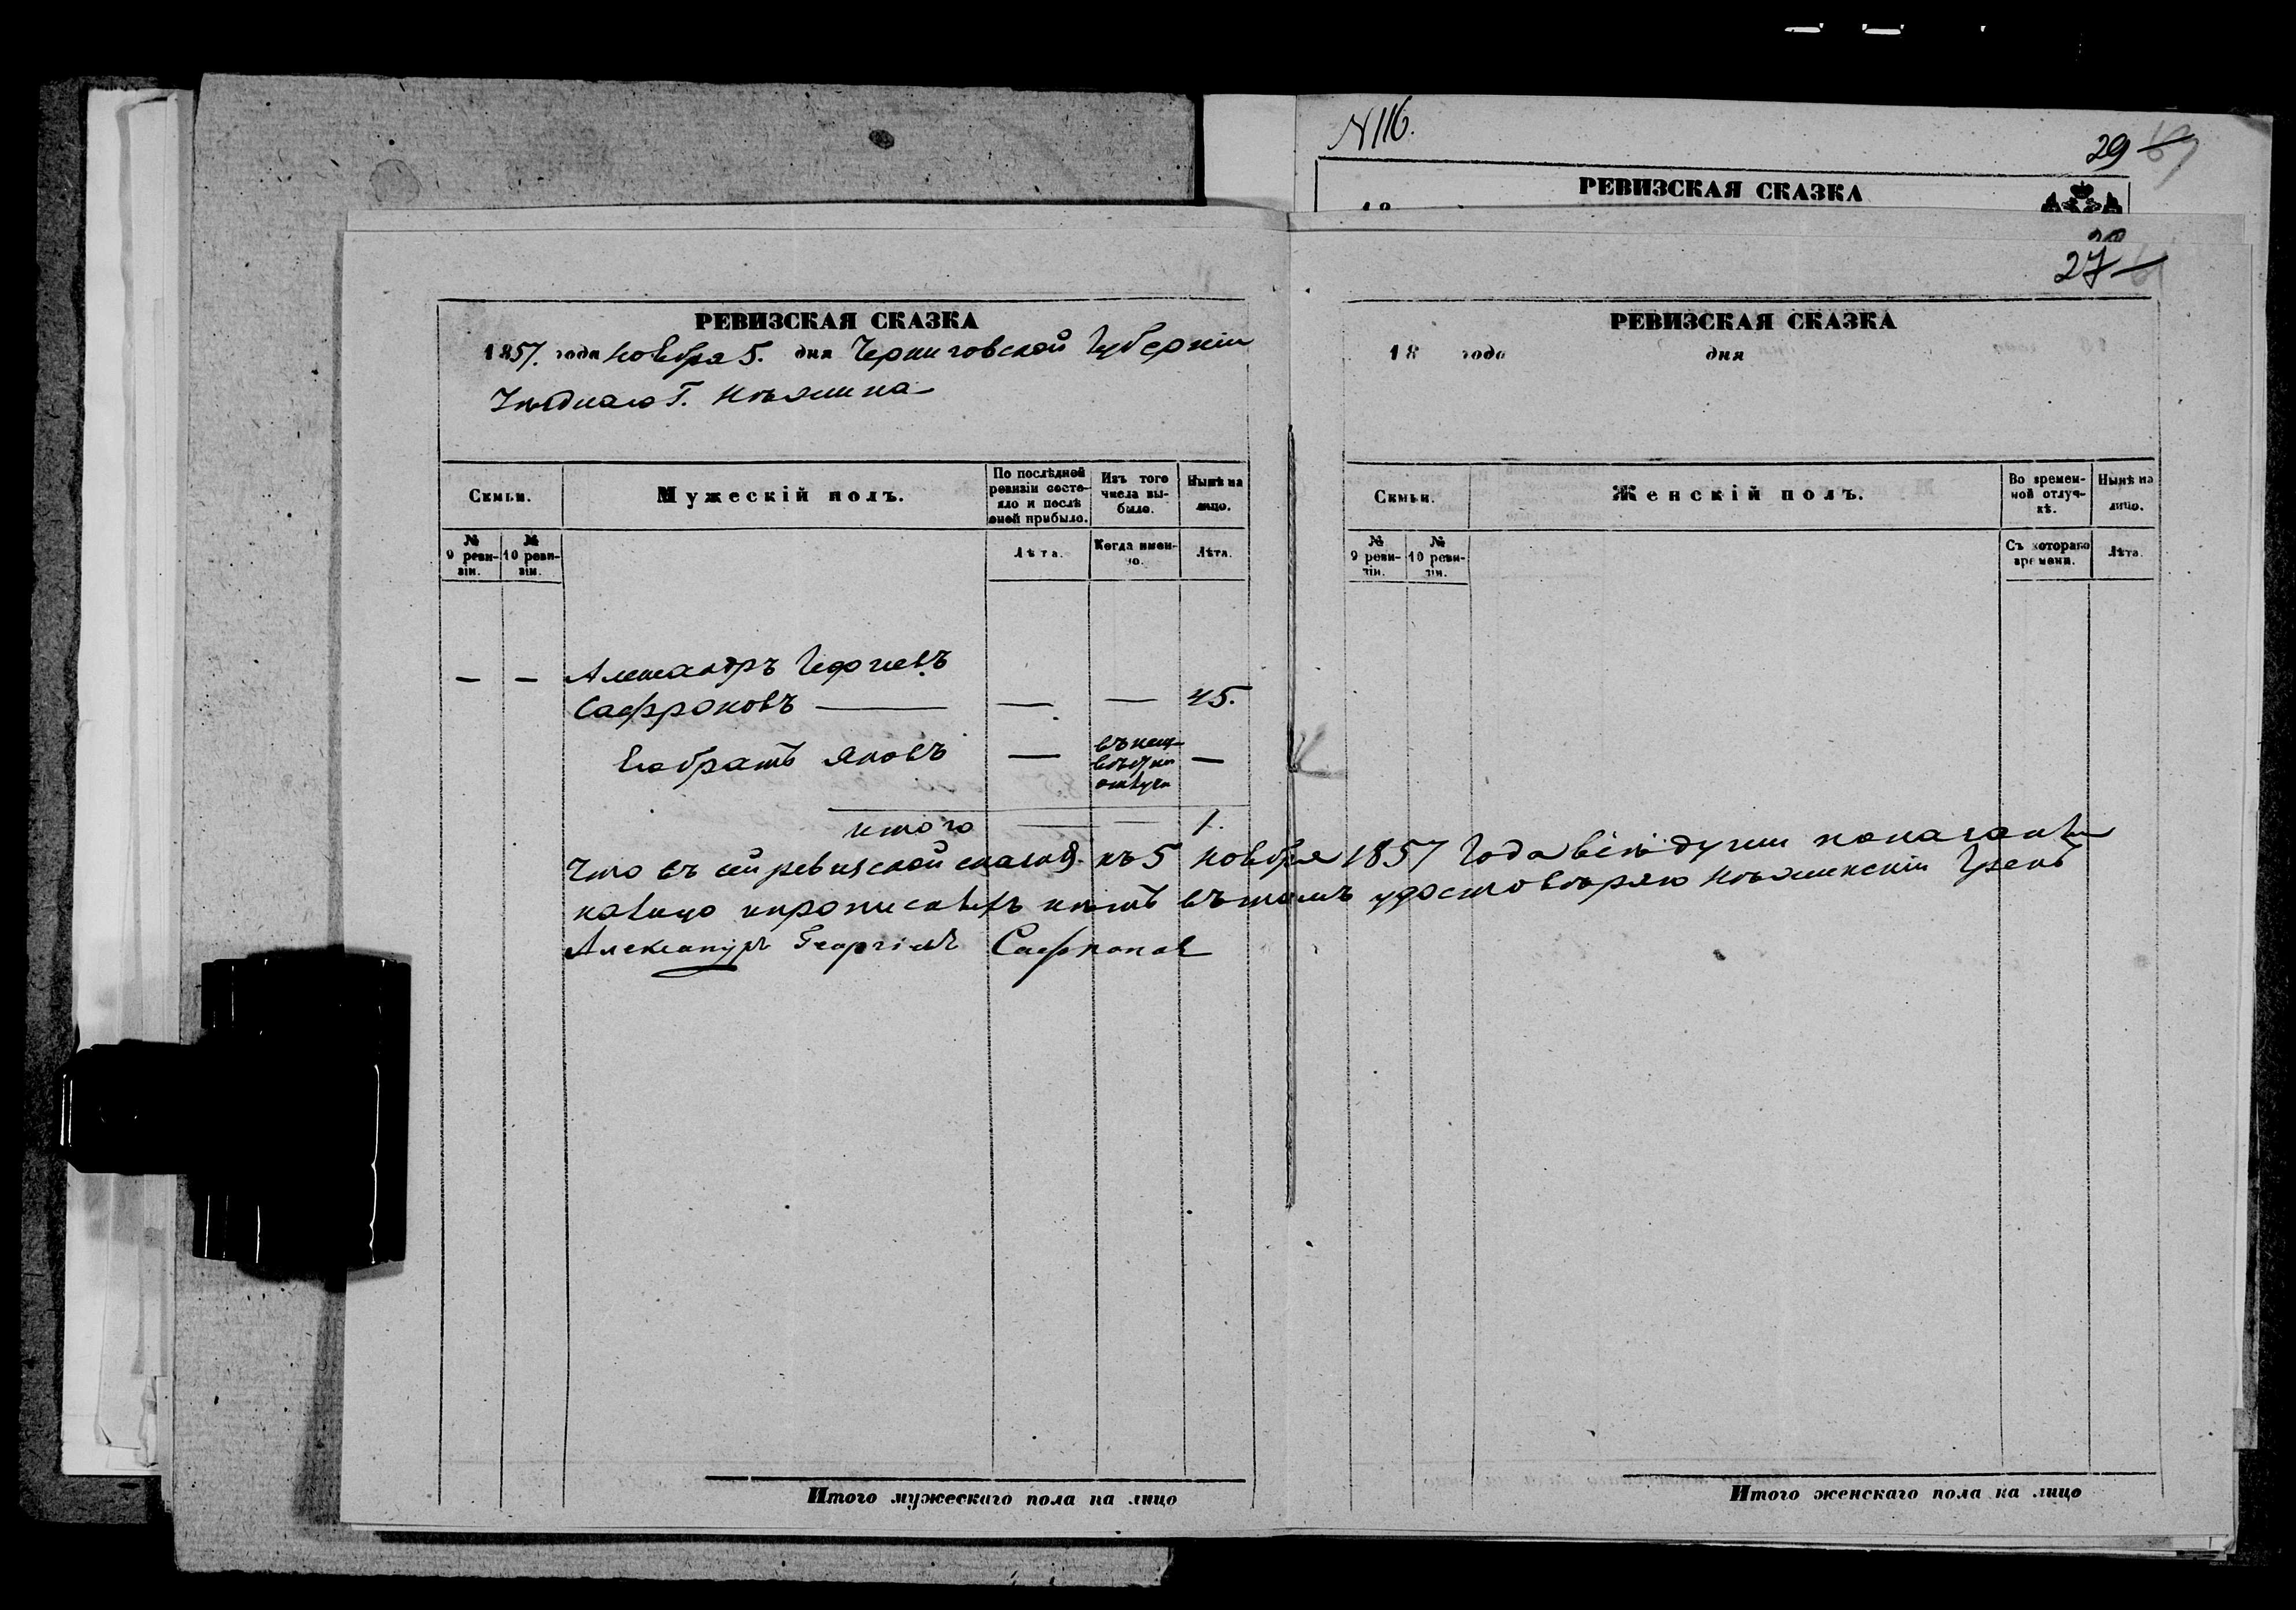 N 116.
29
РЕВИЗСКАЯ СКАЗКА
18
27
РЕВИЗСКАЯ СКАЗКА
1857. года ноября 5. дня Черниговской Губерніи
Уѣзднаго Г. Нѣжина
Семьи.
Мужескій полъ.
По послѣдней ревизіи состояло и послѣ оной прибыло.
Изъ того числа выбыло.
Нынѣ на лицо.
№ 9 ревизіи.
№ 10 ревизіи.
Лѣта.
Когда именно.
Лѣта.
— — Александръ Георгіевъ
Сафроновъ — — — 45.
Его братъ Яковъ — въ неизвѣстной отлучке —
итого — — 1.
Что въ сей ревизской сказке къ 5 ноября 1857 Года всѣ души показаны
налицо и прописныхъ нѣтъ въ томъ удостовѣряю Нѣжинскій Грекъ
Александръ Георгіевъ Сафронов
Итого мужескаго пола на лицо
РЕВИЗСКАЯ СКАЗКА
18 года дня
Семьи.
Женскій полъ.
Во временной отлучкѣ.
Нынѣ на лицо.
№ 9 ревизіи.
№ 10 ревизіи.
Съ котораго времени.
Лѣта.
Итого женскаго пола на лицо